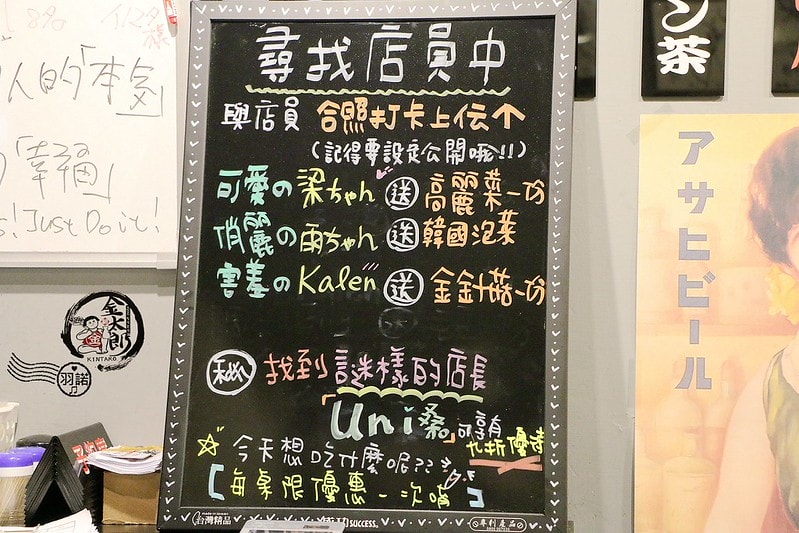 尋找店員中
與店員 合照打卡上伝个
(記得要設定公開哦!!)
可愛の梁ちゃん 送 高麗菜一份
俏麗の雨ちゃん 送 韓國泡菜
害羞の Kalen 送 金針菇一份
秘 找到謎樣的店長
「Uni桑」可享有
九折優待
☆今天想吃什麼呢??
【每桌限優惠一次唷】
台灣精品
SUCCESS.
專利產品
人的「本氣」
「幸福」
Just Do it!
金太郎
KINTARO
羽諾
ン茶
アサヒビール